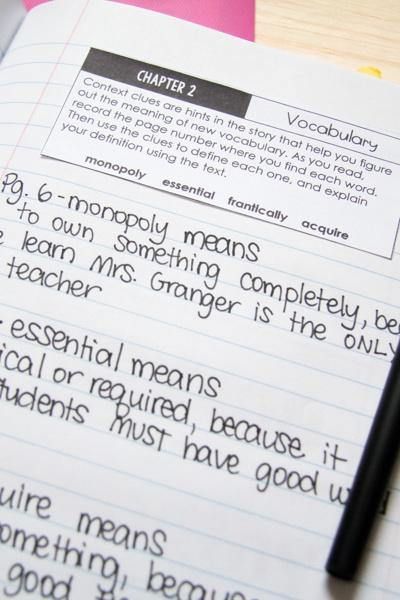 CHAPTER 2
Vocabulary
Context clues are hints in the story that help you figure
out the meaning of new vocabulary. As you read,
record the page number where you find each word.
Then use the clues to define each one, and explain
your definition using the text.
monopoly essential frantically acquire
Pg. 6 - monopoly means
to own something completely, be
learn Mrs. Granger is the ONLY
teacher
essential means
ical or required, because it
tudents must have good
uire means
omething, because
good